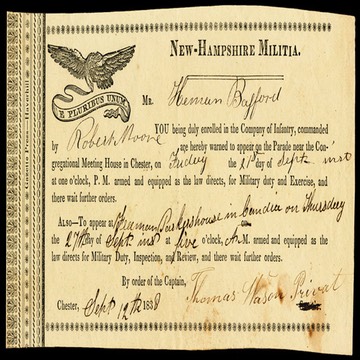 Gazette Press, Haverhill
New-Hampshire Militia.
E PLURIBUS UNUM
Mr. Heman Bafford
YOU being duly enrolled in the Company of Infantry, commanded
by Robert Moore are hereby warned to appear on the Parade near the Con-
gregational Meeting House in Chester, on Friday the day of Sept. inst
at one o'clock, P. M. armed and equipped as the law directs, for Military duty and Exercise, and
there wait further orders.
Also—To appear at house in Candia on Thursday
the 27th day of Sept ins at five o'clock, A. M. armed and equipped as the
law directs for Military Duty, Inspection, and Review, and there wait further orders.
By order of the Captain,
Thomas Wason Privat
Chester, Sept 12th 1838